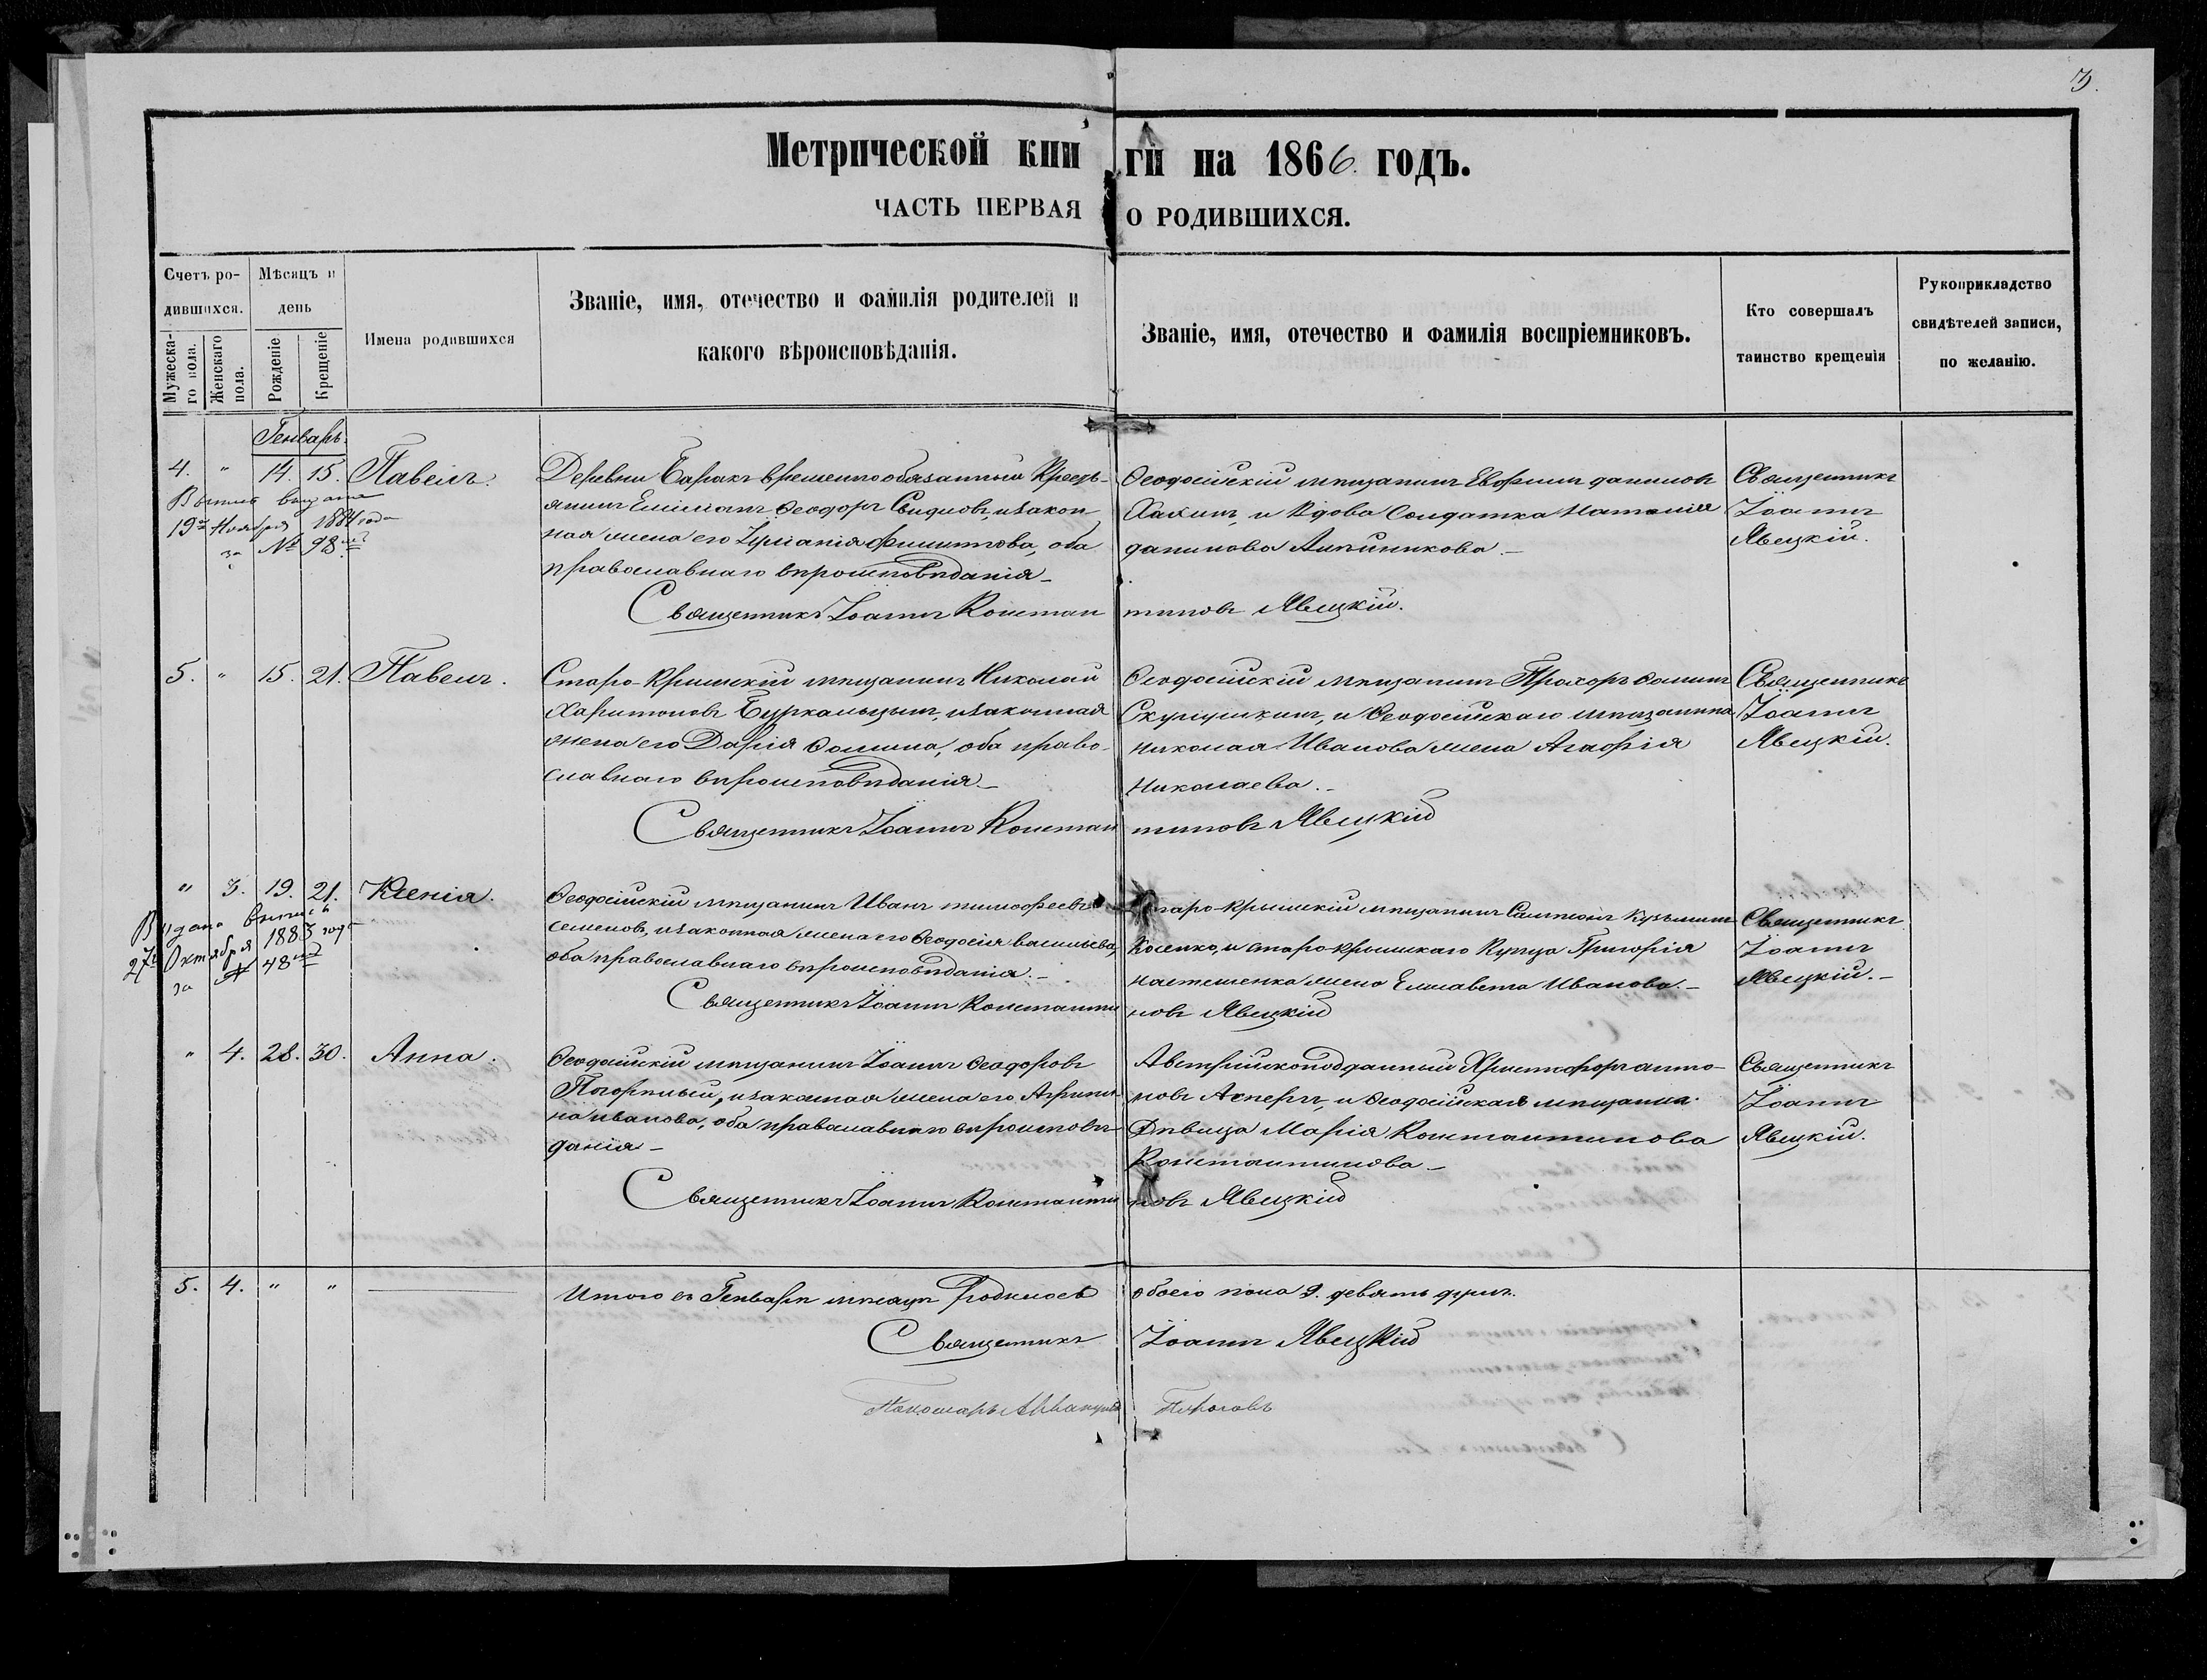 3.
Метрической книги на 1866. годъ.
ЧАСТЬ ПЕРВАЯ О РОДИВШИХСЯ.
Счетъ родившихся.
Мужескаго пола.
Женскаго пола.
Мѣсяцъ и день
Рожденіе
Крещеніе
Имена родившихся
Званіе, имя, отечество и фамилія родителей и
какого вѣроисповѣданія.
Званіе, имя, отечество и фамилія воспріемниковъ.
Кто совершалъ
таинство крещенія
Рукоприкладство
свидѣтелей записи,
по желанію.
Генварь.
4. " 14. 15. Павелъ.
19го Ноября 1884 года
за № 98
Деревни Баракъ временнообязанный Кресть-
янинъ Феодоръ и закон
ная жена его Филиппова, оба
православнаго вѣроисповѣданія
Феодосійскій мѣщанинъ Евфимъ Даниловъ
и Вдова Солдатка Наталія
Данилова
Священникъ
Іоаннъ
Явецкій.
Священникъ Іоаннъ Константиновъ Явецкій.
5. " 15. 21. Павелъ.
Старо-Крымскій мѣщанинъ Николай
Харитоновъ и законная
жена его Дарія Фомина, оба право-
славнаго вѣроисповѣданія
Феодосійскій мѣщанинъ Прохоръ Фоминъ
и Феодосійскаго мѣщанина
Николая Иванова жена Агафія
Николаева.
Священникъ
Іоаннъ
Явецкій.
Священникъ Іоаннъ Константиновъ Явецкій
" 3. 19. 21. Ксенія.
Выдана выпись
27го Октября 1883 года
за № 48
Феодосійскій мѣщанинъ Иванъ Тимофеевъ
Семеновъ, и законная жена его Феодосія Васильева,
оба православнаго вѣроисповѣданія.
Старо-Крымскій мѣщанинъ Сампсонъ Кузьминъ
Косенко, и старо-крымскаго Купца Григорія
жена Елисавета Иванова.
Священникъ
Іоаннъ
Явецкій.
Священникъ Іоаннъ Константиновъ Явецкій
" 4. 28. 30. Анна.
Феодосійскій мѣщанинъ Іоаннъ Феодоровъ
Погорѣлый, и законная жена его Агрипи
на Иванова, оба православнаго вѣроисповѣ-
данія
Австрійскоподданный Христофоръ Анто-
новъ и Феодосійская мѣщанка
Дѣвица Марія Константинова
Константинова
Священникъ
Іоаннъ
Явецкій.
Священникъ Іоаннъ Константиновъ Явецкій
5. 4. " " Итого въ Генварѣ мѣсяцѣ Родилось обоего пола 9. девять душъ.
Священникъ Іоаннъ Явецкій
Пономарь Пироговъ